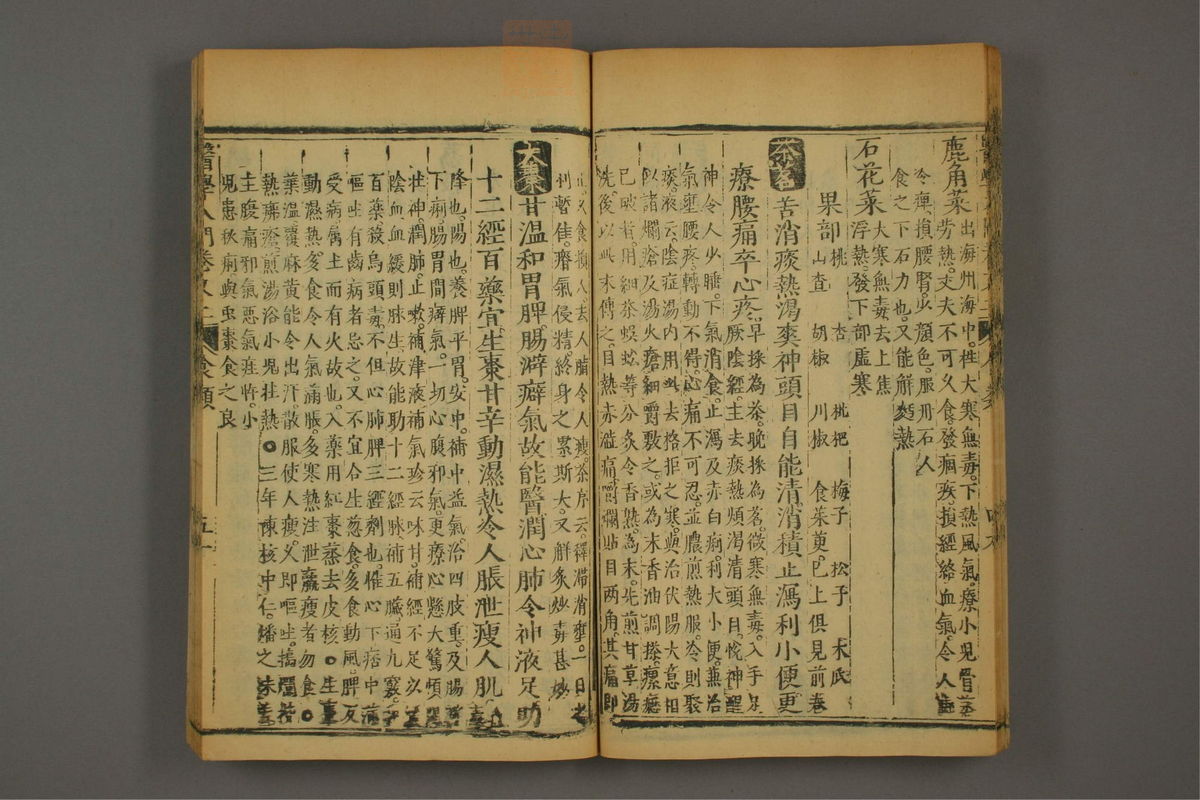 鹿角菜出海州海中。性大寒無毒。下熱風氣。療小兒骨蒸
勞熱。丈夫不可久食。發痼疾。損經絡血氣。令人
冷痺。損腰腎。少顏色。服丹石人
食之下石力也。又能解麪熱
石花菜大寒無毒。去上焦
浮熱。發下部虛寒
果部桃 杏 枇杷 梅子 松子 木瓜
山查 胡椒 川椒 食茱萸。已上俱見前卷
茶茗苦消痰熱渴爽神頭目自能清消積止瀉利小便更
療腰痛卒心疼早採為茶。晚採為茗。微寒無毒。入手足
厥陰經。主去痰熱煩渴清頭目。悅神醒
神令人少睡。下氣消食。止瀉及赤白痢。利大小便。兼治
氣壅腰疼。轉動不得。心痛不可忍。並濃煎熱服。冷則聚
痰。液云。陰症湯內用此。去格拒之寒。與治伏陽大意相
似。諸爛瘡及湯火瘡。細嚼敷之。或為末香油調搽。瘰癧
已破者。用細茶蜈蚣等分。炙令香熟。為末。先煎甘草湯
洗。後以此末傅之。目熱赤澁痛。嚼爛貼目兩角。其痛即
止。久食損人。去人脂令人瘦。茶序云。釋滯消壅。一日之
利暫佳。瘠氣侵精。終身之累斯大。又解炙炒毒甚妙
大棗甘溫和胃脾。腸澼癖氣故能醫。潤心肺令神液足助
十二經百藥宜。生棗甘辛動濕熱。令人脹泄瘦人肌
降也。陽也。養脾平胃。安中。補中益氣。治四肢重。及腸澼
下痢。腸胃間癖氣。一切心腹邪氣。更療心懸大驚煩悶
壯神潤肺。止嗽。補津液。補氣珍云味甘。補經不足以
陰血。血緩則脉生。故能助十二經脉。補五臟。通九竅。和
百藥。殺烏頭毒。不但心肺脾三經劑也。惟心下痞中滿
嘔吐者忌之。又不宜合生葱食。多食動風。脾反
受病。屬土而有火故也。入藥用紅棗蒸去皮核。○生棗
動濕熱。多食令人氣滿脹。多寒熱注泄羸瘦者勿食。○
葉溫。覆麻黃能令出汗。散服使人瘦。久即嘔吐。
熱痱瘡。煎湯浴小兒壯熱。○三年陳核中仁。燔之味苦
主腹痛邪氣惡氣疰忤。小
兒患秋痢與蟲棗食之良